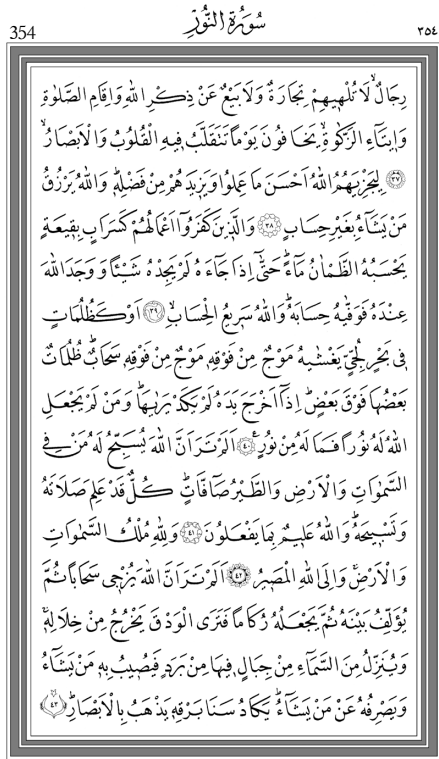 354 سُورَةُ النُّورِ ٣٥٤
رِجَالٌۙ لَا تُلْهٖيهِمْ تِجَارَةٌ وَلَا بَيْعٌ عَنْ ذِكْرِ اللّٰهِ وَاِقَامِ الصَّلٰوةِ
وَاٖيتَٓاءِ الزَّكٰوةِۙ يَخَافُونَ يَوْمًا تَتَقَلَّبُ فٖيهِ الْقُلُوبُ وَالْاَبْصَارُۙ
﴿٣٧﴾ لِيَجْزِيَهُمُ اللّٰهُ اَحْسَنَ مَا عَمِلُوا وَيَزٖيدَهُمْ مِنْ فَضْلِهٖؕ وَاللّٰهُ يَرْزُقُ
مَنْ يَشَٓاءُ بِغَيْرِ حِسَابٍ ﴿٣٨﴾ وَالَّذٖينَ كَفَرُٓوا اَعْمَالُهُمْ كَسَرَابٍ بِقٖيعَةٍ
يَحْسَبُهُ الظَّمْاٰنُ مَٓاءًؕ حَتّٰٓى اِذَا جَٓاءَهُ لَمْ يَجِدْهُ شَيْئًا وَوَجَدَ اللّٰهَ
عِنْدَهُ فَوَفّٰيهُ حِسَابَهُؕ وَاللّٰهُ سَرٖيعُ الْحِسَابِۙ ﴿٣٩﴾ اَوْ كَظُلُمَاتٍ
فٖى بَحْرٍ لُجِّىٍّ يَغْشٰيهُ مَوْجٌ مِنْ فَوْقِهٖ مَوْجٌ مِنْ فَوْقِهٖ سَحَابٌؕ ظُلُمَاتٌ
بَعْضُهَا فَوْقَ بَعْضٍؕ اِذَٓا اَخْرَجَ يَدَهُ لَمْ يَكَدْ يَرٰيهَاؕ وَمَنْ لَمْ يَجْعَلِ
اللّٰهُ لَهُ نُورًا فَمَا لَهُ مِنْ نُورٍࣖ ﴿٤٠﴾ اَلَمْ تَرَ اَنَّ اللّٰهَ يُسَبِّحُ لَهُ مَنْ فِى
السَّمٰوَاتِ وَالْاَرْضِ وَالطَّيْرُ صَٓافَّاتٍؕ كُلٌّ قَدْ عَلِمَ صَلَاتَهُ
وَتَسْبٖيحَهُؕ وَاللّٰهُ عَلٖيمٌ بِمَا يَفْعَلُونَ ﴿٤١﴾ وَلِلّٰهِ مُلْكُ السَّمٰوَاتِ
وَالْاَرْضِۚ وَاِلَى اللّٰهِ الْمَصٖيرُ ﴿٤٢﴾ اَلَمْ تَرَ اَنَّ اللّٰهَ يُزْجٖى سَحَابًا ثُمَّ
يُؤَلِّفُ بَيْنَهُ ثُمَّ يَجْعَلُهُ رُكَامًا فَتَرَى الْوَدْقَ يَخْرُجُ مِنْ خِلَالِهٖۚ
وَيُنَزِّلُ مِنَ السَّمَٓاءِ مِنْ جِبَالٍ فٖيهَا مِنْ بَرَدٍ فَيُصٖيبُ بِهٖ مَنْ يَشَٓاءُ
وَيَصْرِفُهُ عَنْ مَنْ يَشَٓاءُؕ يَكَادُ سَنَا بَرْقِهٖ يَذْهَبُ بِالْاَبْصَارِؕ ﴿٤٣﴾